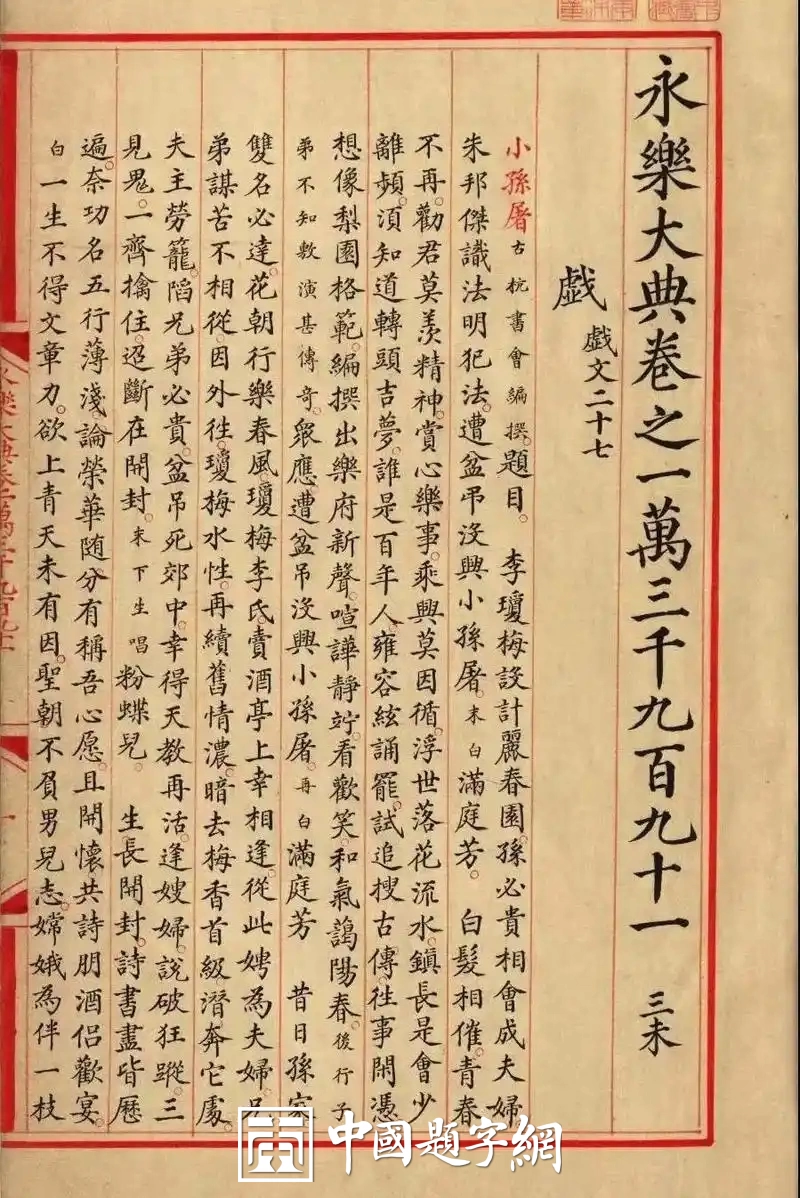 永樂大典卷之一萬三千九百九十一 三未
戯 戯文二十七
小孫屠 古杭書會編撰 題目 李瓊梅設計麗春園孫必貴相會成夫婦
朱邦傑識法明犯法遭盆吊没興小孫屠 末白 滿庭芳 白髮相催青春
不再勸君莫羡精神賞心樂事乘興莫因循浮世落花流水鎮長是會少
離頻湏知道轉頭吉夢誰是百年人雍容絃誦罷試追搜古傳徃事閒憑
想像梨園格範編撰出樂府新聲喧譁靜竚看歡笑和氣藹陽春 後行子
弟不知敷演甚傳奇 衆應遭盆吊没興小孫屠 再白 滿庭芳 昔日孫家
雙名必達花朝行樂春風瓊梅李氏賣酒亭上幸相逢從此娉為夫婦兄
弟謀苦不相從因外徃瓊梅水性再續舊情濃暗去梅香首級潛奔它處
夫主勞籠陷兄弟必貴盆吊死郊中幸得天教再活逢嫂婦說破狂蹤三
見鬼一齊擒住迢斷在開封 末下生唱 粉蝶兒 生長開封詩書盡皆歷
遍奈功名五行薄淺論榮華随分有稱吾心愿且開懷共詩朋酒侣歡宴
白 一生不得文章力欲上青天未有因聖朝不負男兒志嫦娥為伴一枝
中國題字網